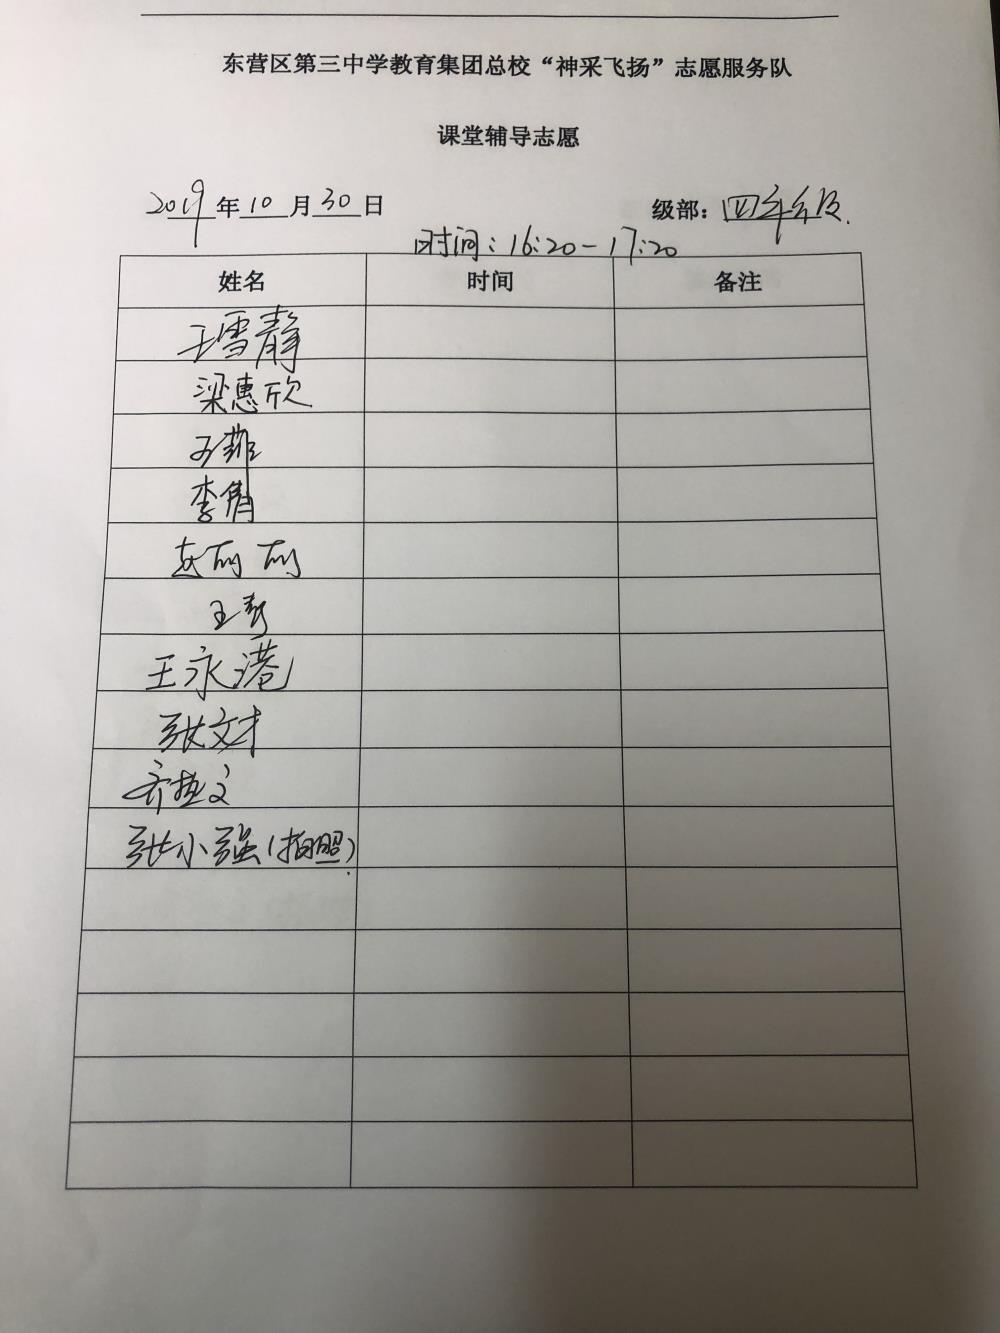 东营区第三中学教育集团总校“神采飞扬”志愿服务队
课堂辅导志愿
2019年10月30日 级部：四年级.
时间：16:20-17:20
姓名 时间 备注
王雪静
梁惠欣
李倩
王
王永港
张文才
齐
张小强(拍照)